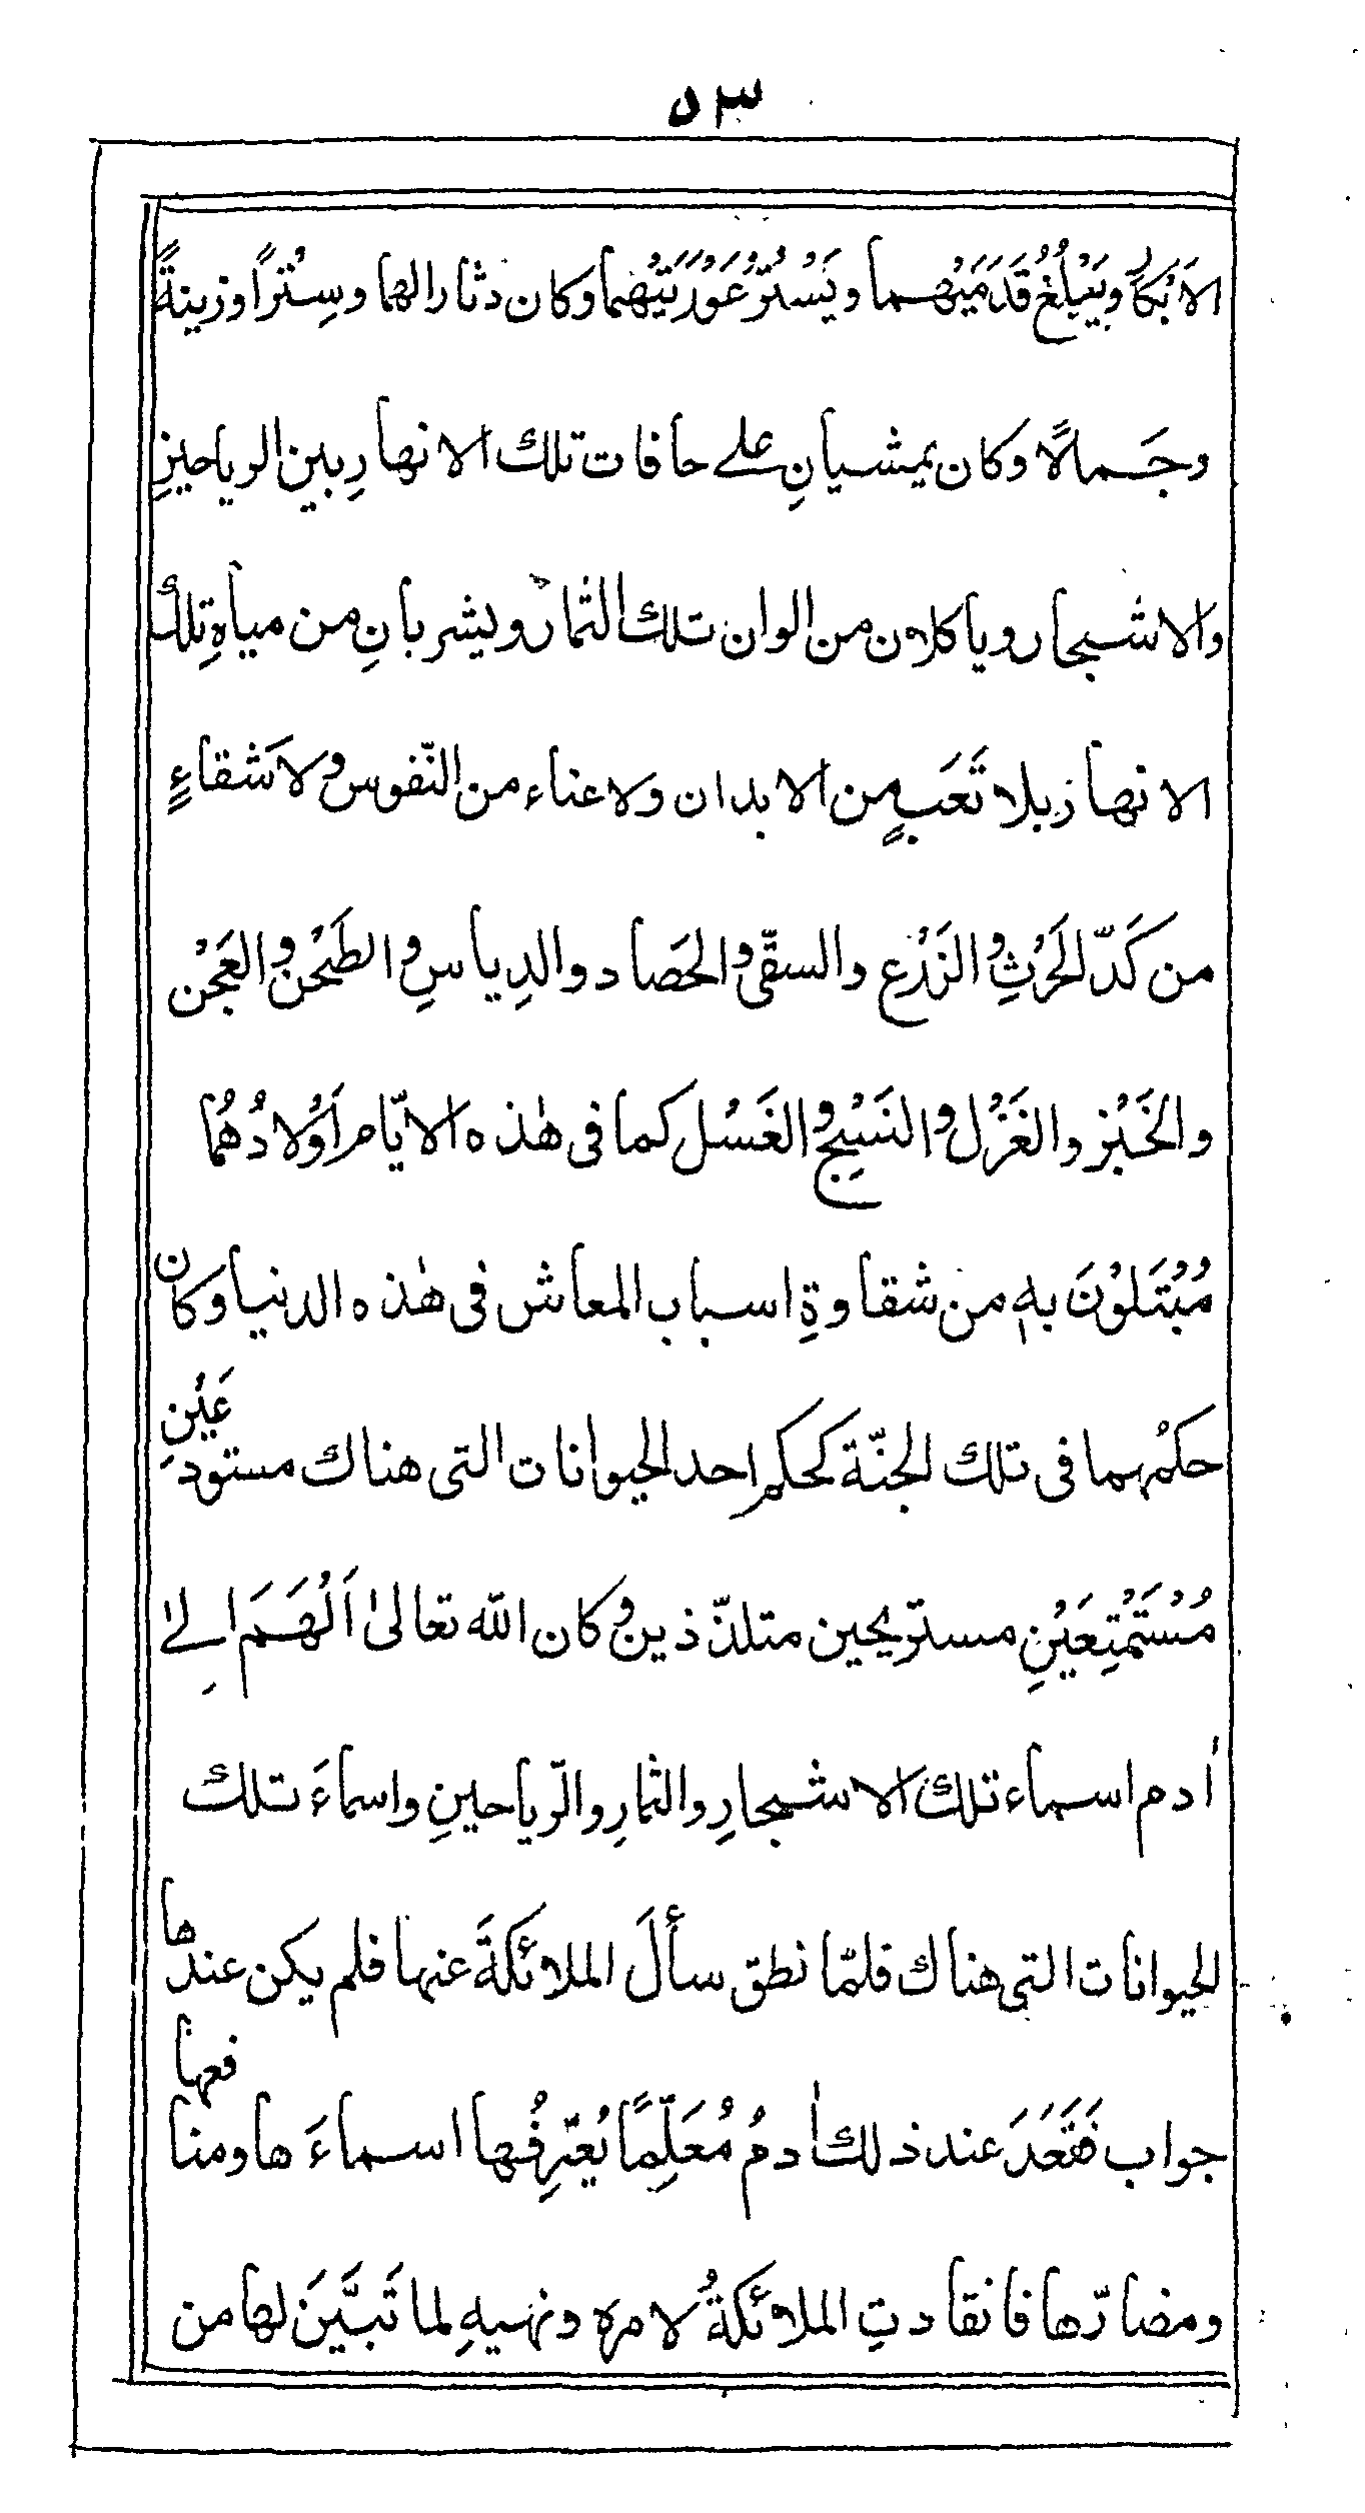 ٥٣
الاَبْكارُ وَيَبْلُغُ قَدَمَيْهما ويَسْتُرُ عَوْرَتَيْهُما وكان دثارا لهما وسِتْرًا وزينةً
وجَمالًا وكان يمشيانِ على حافات تلك الانهارِ بين الرياحينِ
والاشجار وياكلان من الوان تلك الثمار ويشربانِ من مياهِ تلك
الانهار بلا تَعَبٍ من الابدان ولا عناء من النّفوس ولا شقاءٍ
من كَدّ الحَرْثِ والزَرْعِ والسقى والحَصاد والدِياسِ والطَحْن والعَجْن
والخَبْز والغَزْل والنَسْج والغَسْل كما فى هٰذه الايّام اَوْلادُهُما
مُبْتَلوْنَ بهٖ من شقاوةِ اسباب المعاش فى هٰذه الدنيا وكان
حكمُهما فى تلك الجنّة كحكم احد الحيوانات التى هناك مستودعَيْنِ
مُسْتَمْتِعَيْنِ مستريحين متلذّذين وكان الله تعالىٰ اَلْهَمَ الىٰ
اٰدم اسماء تلك الاشجارِ والثمارِ والرّياحينِ واسماءَ تلك
الحيوانات التى هناك فلمّا نطق سألَ الملائكةَ عنها فلم يكن عندها
جواب فقَعَدَ عند ذلك اٰدمُ مُعَلِّمًا يُعَرِّفُها اسماءَها ومنافعها
ومضارّها فانقادتِ الملائكةُ لامره ونهيهِ لما تَبيَّنَ لها من